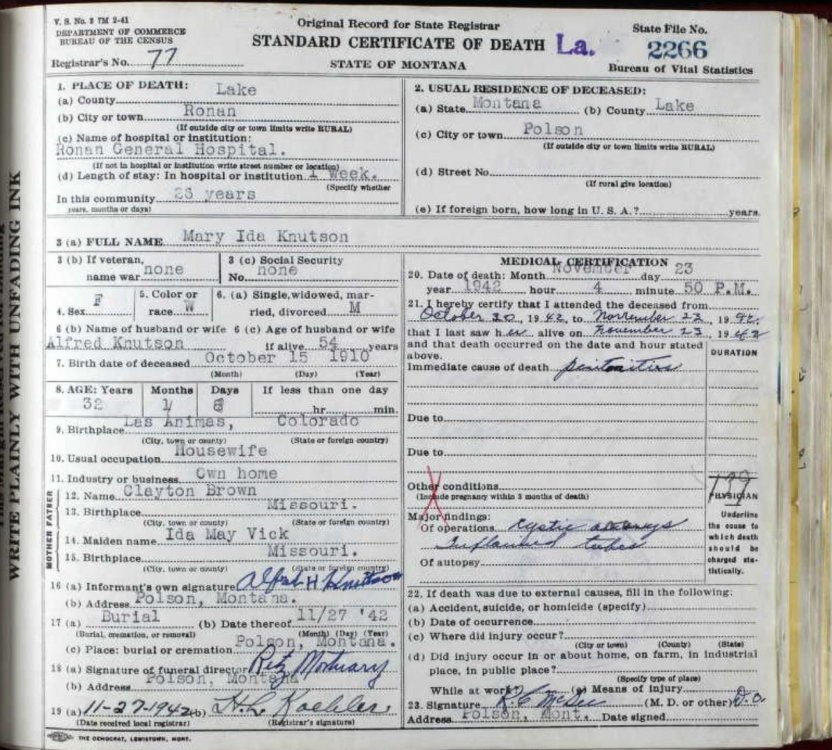 V. S. No. 2 7M 2-41
DEPARTMENT OF COMMERCE
BUREAU OF THE CENSUS
Registrar's No. 77
Original Record for State Registrar
STANDARD CERTIFICATE OF DEATH La.
STATE OF MONTANA
State File No.
2266
Bureau of Vital Statistics
WRITE PLAINLY WITH UNFADING INK
1. PLACE OF DEATH:
(a) County Lake
(b) City or town Ronan
(If outside city or town limits write RURAL)
(c) Name of hospital or institution:
Ronan General Hospital.
(If not in hospital or institution write street number or location)
(d) Length of stay: In hospital or institution 1 week.
(Specify whether
In this community 26 years
years, months or days)
2. USUAL RESIDENCE OF DECEASED:
(a) State Montana (b) County Lake
(c) City or town Polson
(If outside city or town limits write RURAL)
(d) Street No.
(If rural give location)
(e) If foreign born, how long in U. S. A.? years.
3 (a) FULL NAME Mary Ida Knutson
3 (b) If veteran, name war none
3 (c) Social Security No. none
4. Sex F
5. Color or race W
6. (a) Single, widowed, married, divorced M
6 (b) Name of husband or wife 6 (c) Age of husband or wife
Alfred Knutson if alive 54 years
7. Birth date of deceased October 15 1910
(Month) (Day) (Year)
8. AGE: Years Months Days If less than one day
32 1 8 hr. min.
9. Birthplace Las Animas, Colorado
(City, town or county) (State or foreign country)
10. Usual occupation Housewife
11. Industry or business Own home
FATHER
12. Name Clayton Brown
13. Birthplace Missouri.
(City, town or county) (State or foreign country)
MOTHER
14. Maiden name Ida May Vick
15. Birthplace Missouri.
(City, town or county) (State or foreign country)
16 (a) Informant's own signature Alfred H Knutson
(b) Address Polson, Montana.
17 (a) Burial (b) Date thereof 11/27 '42
(Burial, cremation, or removal) (Month) (Day) (Year)
(c) Place: burial or cremation Polson, Montana.
18 (a) Signature of funeral director Retz Mortuary
(b) Address Polson, Montana
19 (a) 11-27-1942 (b) H. L. Koehler
(Date received local registrar) (Registrar's signature)
THE DEMOCRAT, LEWISTOWN, MONT.
MEDICAL CERTIFICATION
20. Date of death: Month November day 23
year 1942 hour 4 minute 50 P.M.
21. I hereby certify that I attended the deceased from
October 30, 1942, to November 23, 1942,
that I last saw her alive on November 23, 1942
and that death occurred on the date and hour stated
above.
DURATION
Immediate cause of death peritonitis
Due to
Due to
Other conditions
(Include pregnancy within 3 months of death)
Major findings:
Of operations cystic ovarys
Inflamed tubes
Of autopsy
PHYSICIAN
Underline
the cause to
which death
should be
charged sta-
tistically.
22. If death was due to external causes, fill in the following:
(a) Accident, suicide, or homicide (specify)
(b) Date of occurrence
(c) Where did injury occur?
(City or town) (County) (State)
(d) Did injury occur in or about home, on farm, in industrial
place, in public place?
(Specify type of place)
While at work? (e) Means of injury
23. Signature (M. D. or other) D.O.
Address Polson, Mont. Date signed